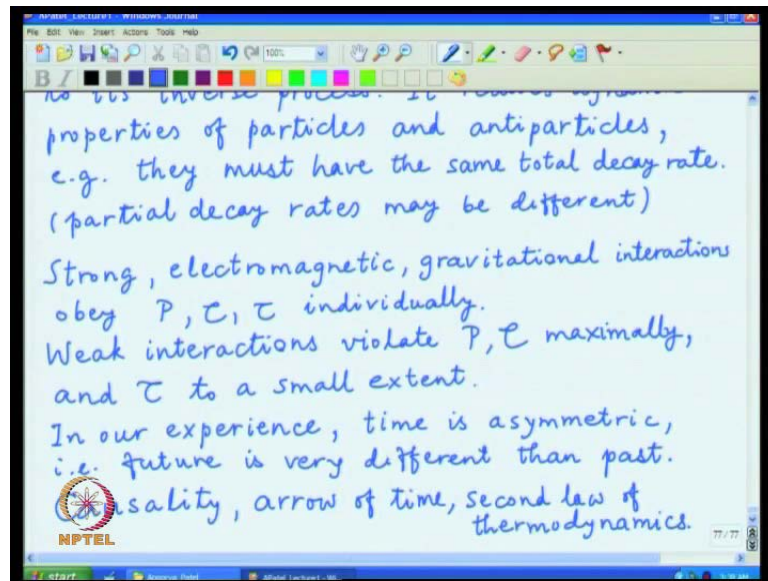 APatel_Lecture1 - Windows Journal
File Edit View Insert Actions Tools Help
100%
B I
to its inverse process. It relates
properties of particles and antiparticles,
e.g. they must have the same total decay rate.
(partial decay rates may be different)
Strong, electromagnetic, gravitational interactions
obey P, C, T individually.
Weak interactions violate P, C maximally,
and T to a small extent.
In our experience, time is asymmetric,
i.e. future is very different than past.
Causality, arrow of time, second law of
thermodynamics.
NPTEL
77 / 77
start
Apoorva Patel
APatel_Lecture1 - Wi...